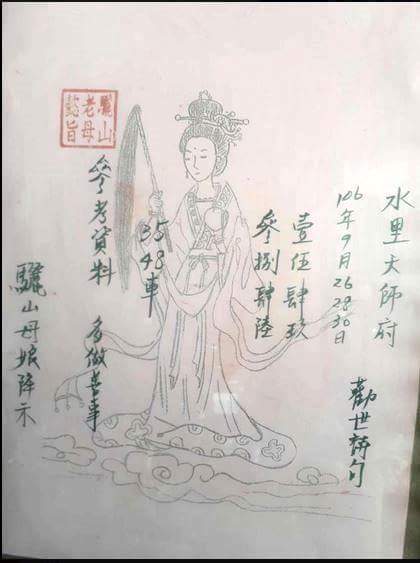 水里大師府
106年9月26 28 30日
勸世詩句
壹伍肆玖
參捌肆陸
35
48車
多做善事
參考資料
驪山老母懿旨
驪山母娘降示